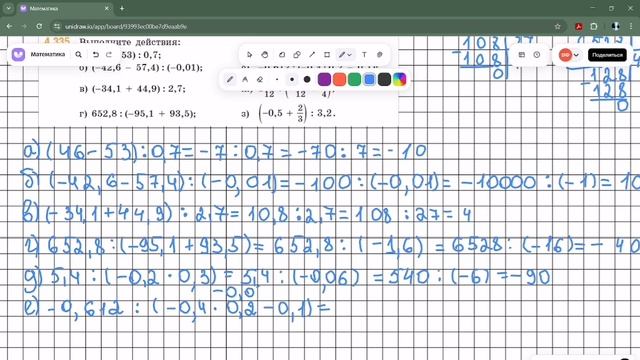 Математика
unidraw.io/app/board/93993ec00be7d9eaab9e
Математика
Поделиться
4.335 Выполните действия:
53) : 0,7;
б) (−42,6 − 57,4) : (−0,01);
в) (−34,1 + 44,9) : 2,7;
г) 652,8 : (−95,1 + 93,5);
з) (−0,5 + 2/3) : 3,2.
108
−108
0
128
−128
0
а) (46−53):0,7=−7:0,7=−70:7=−10
б) (−42,6−57,4):(−0,01)=−100:(−0,01)=−10000:(−1)=10
в) (−34,1+44,9):2,7=10,8:2,7=108:27=4
г) 652,8:(−95,1+93,5)=652,8:(−1,6)=6528:(−16)=−40
д) 5,4:(−0,2·0,3)=5,4:(−0,06)=540:(−6)=−90
−0,0
е) −0,612:(−0,4·0,2−0,1)=